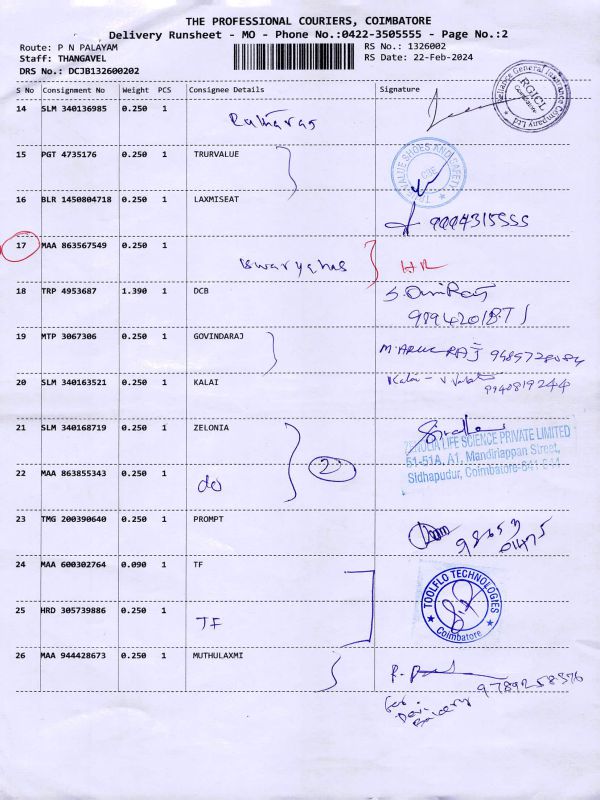 THE PROFESSIONAL COURIERS, COIMBATORE
Delivery Runsheet - MO - Phone No.:0422-3505555 - Page No.:2
Route: P N PALAYAM
RS No.: 1326002
Staff: THANGAVEL
RS Date: 22-Feb-2024
DRS No.: DCJB132600202
S No Consignment No Weight PCS Consignee Details Signature
14 SLM 340136985 0.250 1
Reliance General Insurance Company Ltd
RGICL
Coimbatore
15 PGT 4735176 0.250 1 TRURVALUE
TRU VALUE SHOES AND SAFETY
CBE
16 BLR 1450804718 0.250 1 LAXMISEAT
9994315555
17 MAA 863567549 0.250 1
HR
18 TRP 4953687 1.390 1 DCB
19 MTP 3067306 0.250 1 GOVINDARAJ
20 SLM 340163521 0.250 1 KALAI
Kalai - 9940819244
21 SLM 340168719 0.250 1 ZELONIA
ZENOLIA LIFE SCIENCE PRIVATE LIMITED
51-51A, A1, Mandiriappan Street,
Sidhapudur, Coimbatore-641 044
22 MAA 863855343 0.250 1
do
2
23 TMG 200390640 0.250 1 PROMPT
98653
01475
24 MAA 600302764 0.090 1 TF
TOOLFLO TECHNOLOGIES
Coimbatore
25 HRD 305739886 0.250 1
TF
26 MAA 944428673 0.250 1 MUTHULAXMI
9789258376